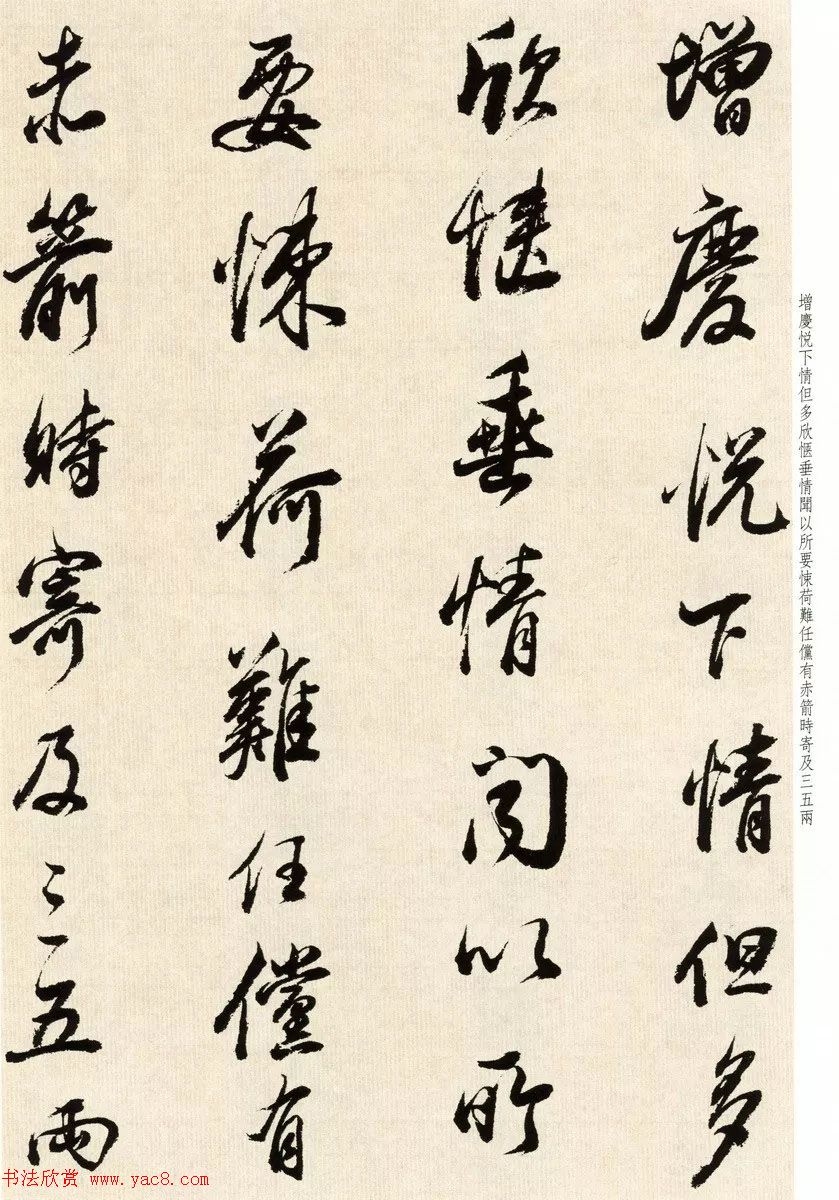 增慶悦下情但多
欣惬垂情聞以所
要悚荷難任儻有
赤箭時寄及三五兩
增慶悦下情但多欣惬垂情聞以所要悚荷難任儻有赤箭時寄及三五兩
书法欣赏 www.yac8.com